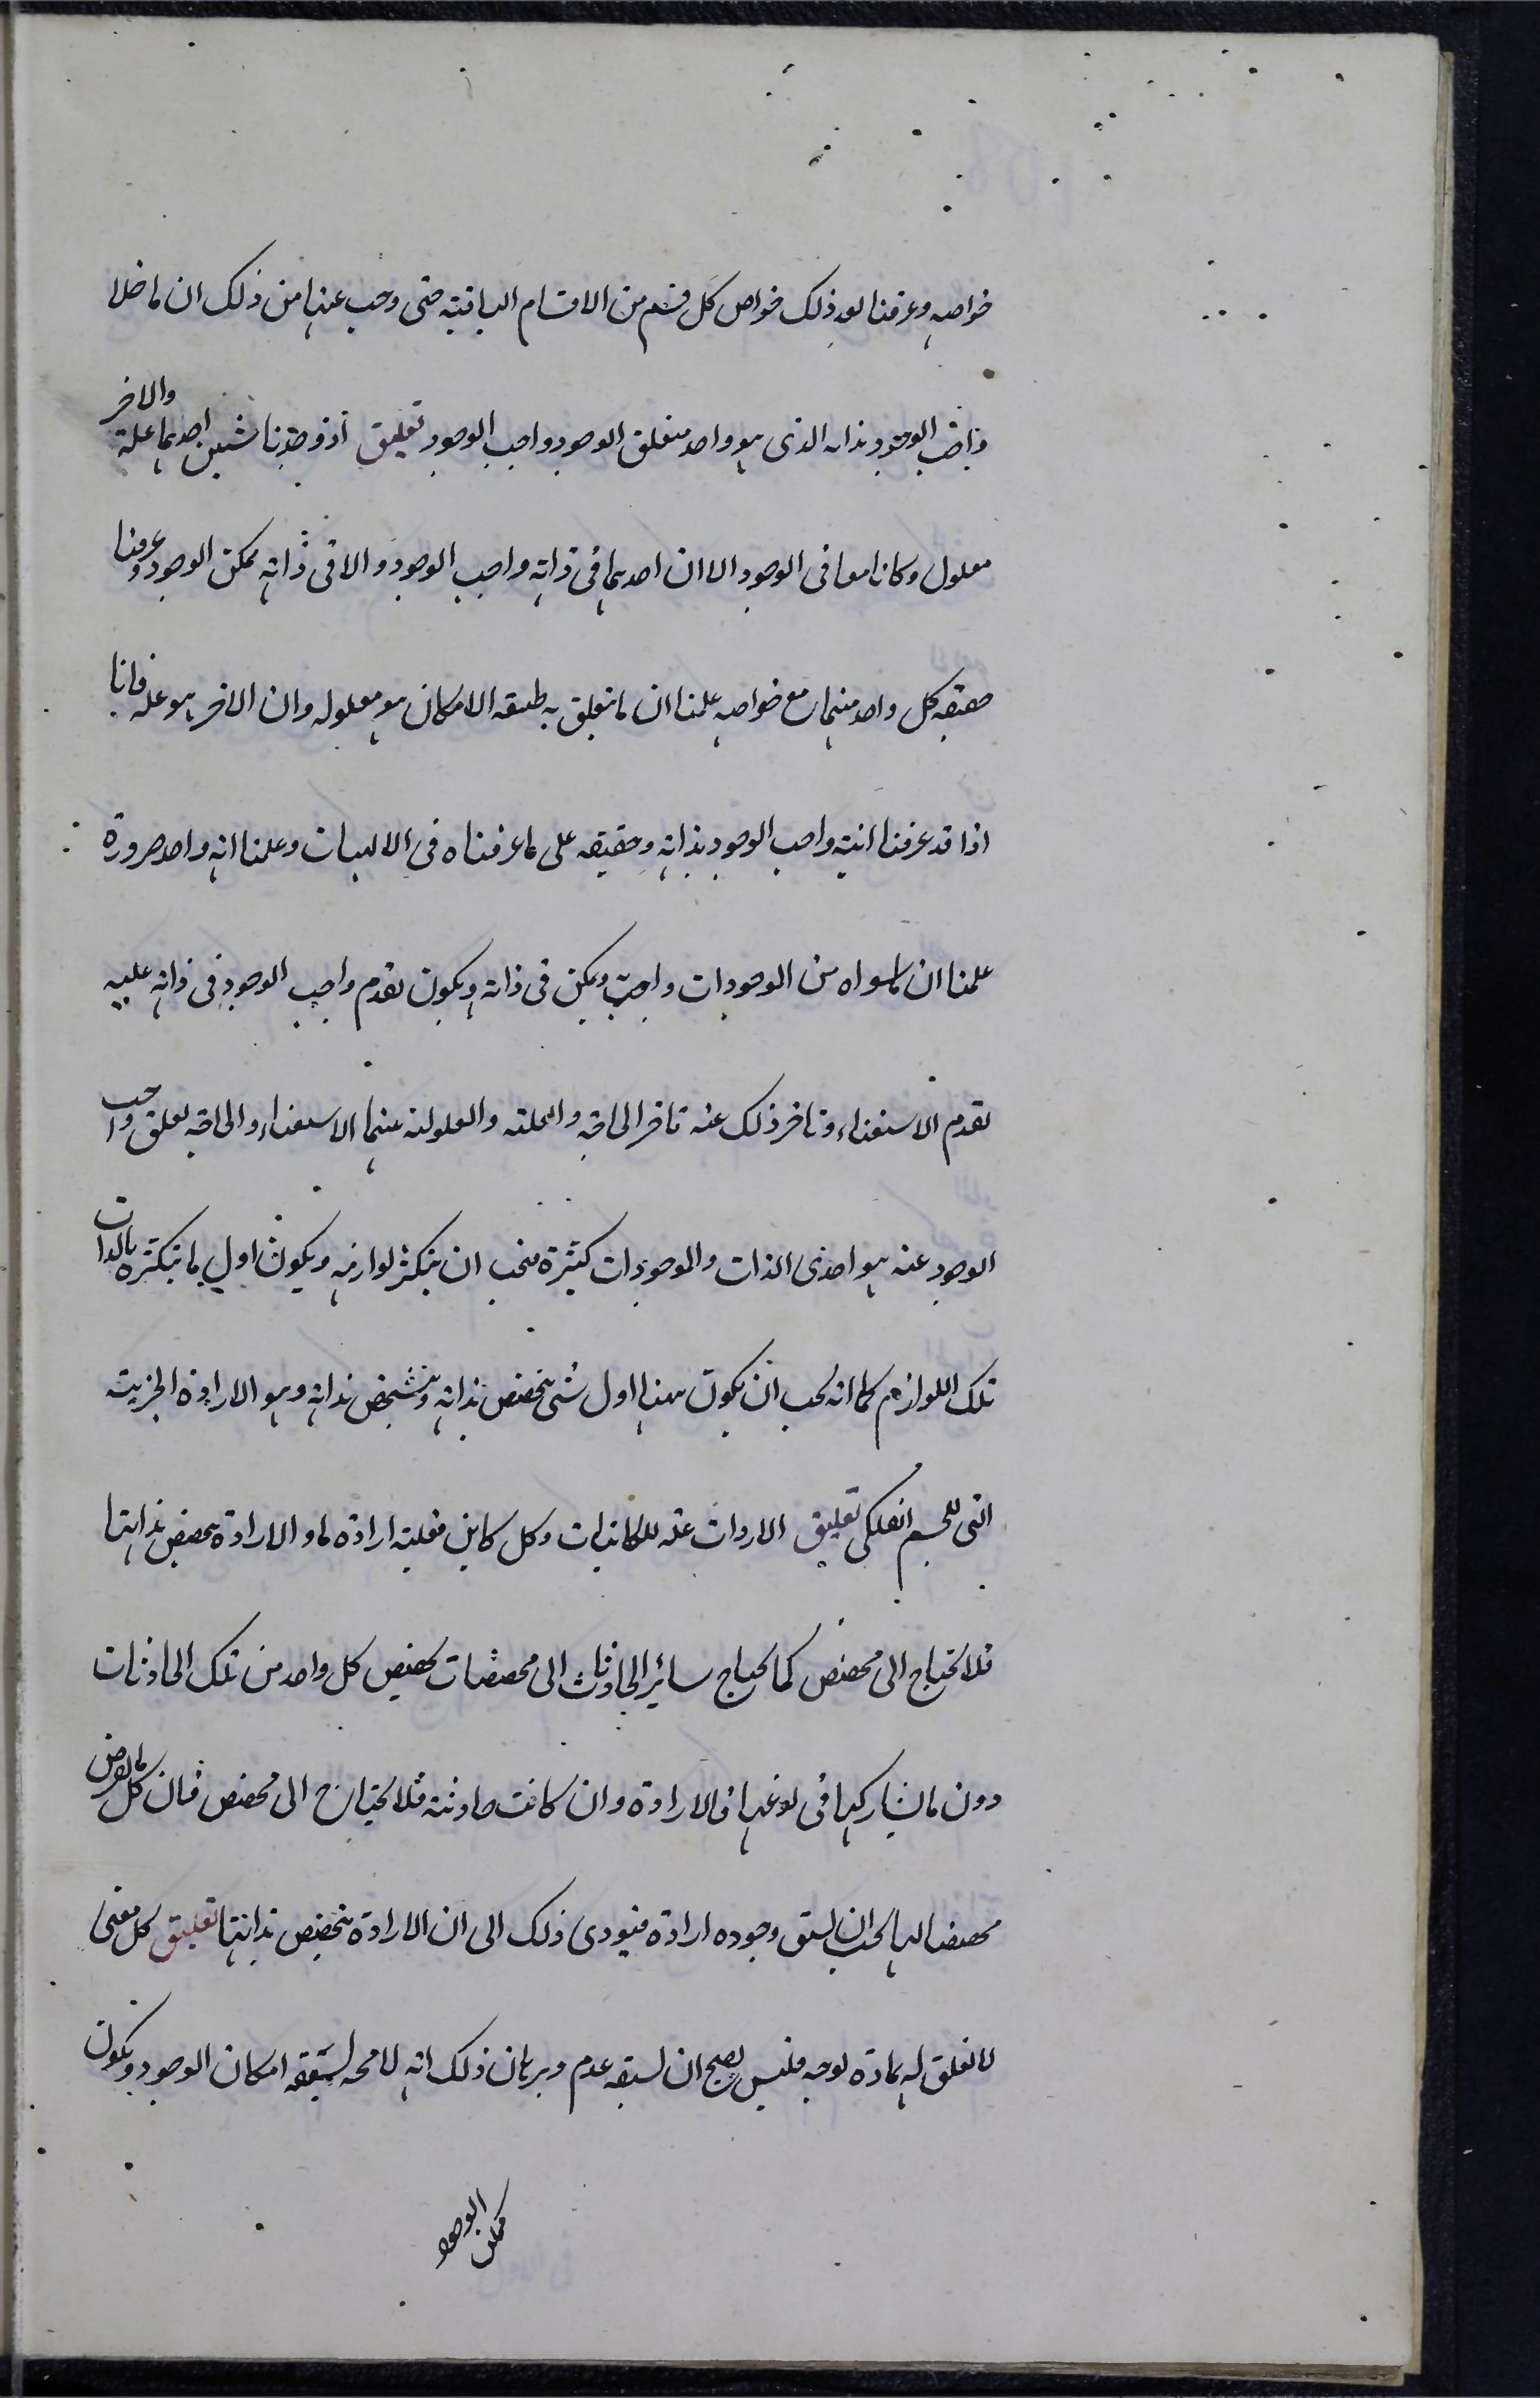 خواصه وعرفنا بعد ذلك خواص كل قسم من الاقسام الباقية حتى وجب عنها من ذلك ان ما خلا
واجب الوجود بذاته الذى هو واحد متعلق الوجود بواجب الوجود تعليق اذا وجدنا شيئين احدهما علة والاخر
معلول وكانا معا فى الوجود الا ان احدهما فى ذاته واجب الوجود والا فى ذاته ممكن الوجود وعرفنا
حقيقه كل واحد منهما مع خواصه علمنا ان ما تعلق به طبيعه الامكان هو معلوله وان الاخر هو علة فانا
اذا قد عرفنا انية واجب الوجود بذاته وحقيقه على ما عرفناه فى الالهيات وعلمنا انه واحد ضرورة
علمنا ان ما سواه من الموجودات واجب وممكن فى ذاته ويكون تقدم واجب الوجود فى ذاته عليه
تقدم الاستغناء وتاخر ذلك عنه تاخر الحاجة والعلة والمعلولية عنهما الاستغناء والحاجة تعليق واجب
الوجود عنه هو احدى الذات والموجودات كثيرة فيجب ان يتكثر لوازمه ويكون اول ما يتكثر بالذات
تلك اللوازم كما انه يجب ان يكون ههنا اول شئ يتخصص بذاته ويتشخص بذاته وهو الارادة الجزئية
التى للجسم الفلكى تعليق الارادات علة للكائنات وكل كاين فعليه ارادة ما والارادة يتخصص بذاتها
فلا تحتاج الى مخصص كما يحتاج سائر الحادثات الى مخصصات يخصص كل واحد من تلك الحادثات
دون ما يشاركها فى نوعها فالارادة وان كانت حادثة فلا تحتاج الى مخصص فان كل ما يفرض
مخصصا لها يجب ان يسبق وجوده ارادة فيودى ذلك الى ان الارادة يتخصص بذاتها تعليق كل معنى
لا تعلق له بمادة بوجه فليس يصح ان يسبقه عدم وبرهان ذلك انه لا محه يسبقه امكان الوجود ويكون
ممكن الوجود